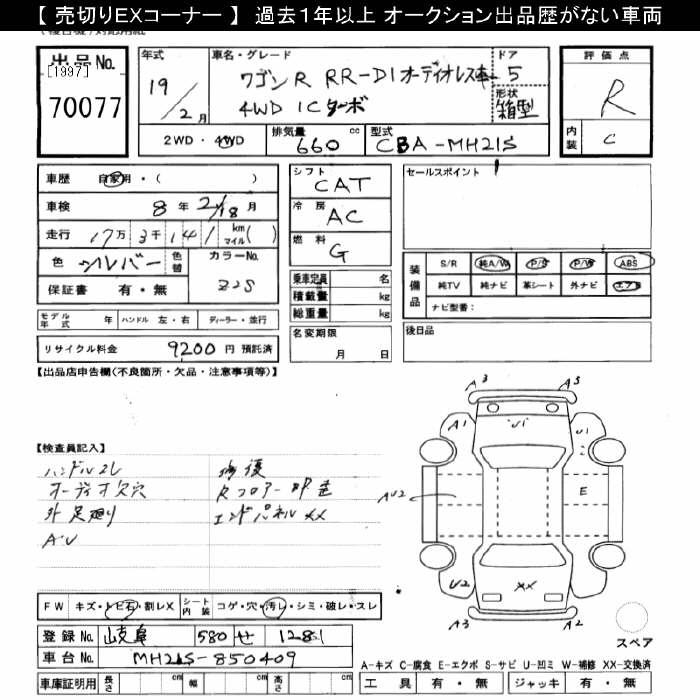 【 売切りEXコーナー 】 過去1年以上 オークション出品歴がない車両
出品No.
[1997]
70077
年式
19/2月
車名・グレード
ワゴンR RR-DI オーディオレス車
4WD ICターボ
ドア
5
形状
箱型
評価点
R
内装
C
2WD・4WD
排気量
660 cc
型式
CBA-MH21S
車歴 自家用・( )
車検 8年 2/18月
走行 17万 3千 141 km マイル( )
色 シルバー 色替 カラーNo. Z2S
保証書 有・無
シフト CAT
冷房 AC
燃料 G
乗車定員 名
積載量 kg
総重量 kg
名変期限
月 日
セールスポイント
装備品
S/R 純A/W P/S P/W ABS
純TV 純ナビ 革シート 外ナビ エアB
ナビ型番:
後日品
モデル年式 年 ハンドル 左・右 ディーラー・並行
リサイクル料金 9200 円 預託済
【出品店申告欄(不良箇所・欠品・注意事項等)】
【検査員記入】
ハンドルスレ
オーディオ欠穴
外 足廻り
AU
修復
Rフロアー部 歪
エンドパネルXX
A3 A5
A1 U1 U1
AU2 E
U2 XX
A3 A2
スペア
FW キズ・トビ石・割レX シート内装 コゲ・穴・汚レ・シミ・破レ・スレ
登録No. 岐阜 580 せ 1281
車台No. MH21S-850409
車庫証明用 長さ cm 幅 cm 高さ cm
A-キズ C-腐食 E-エクボ S-サビ U-凹ミ W-補修 XX-交換済
工具 有・無 ジャッキ 有・無